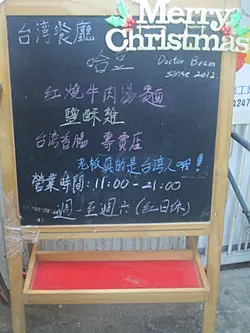 Merry
Christmas
台湾餐廳
哈豆
Doctor Bean
since 2012
紅燒牛肉湯麵
鹽酥雞
台湾香腸 專賣店
老板真的是台湾人哦!
營業時間:11:00-21:00
週一至週六(紅日休)